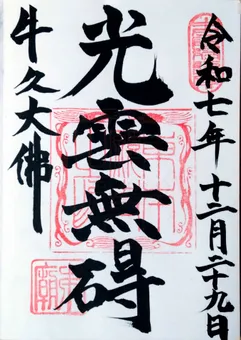 令和七年十二月二十九日
光雲無碍
牛久大佛